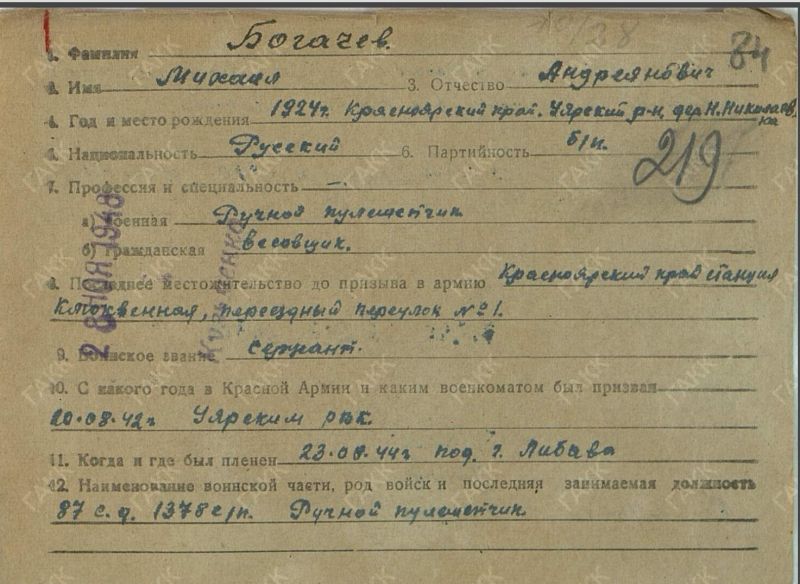 84
1. Фамилия Богачев.
2. Имя Михаил 3. Отчество Андреянович
4. Год и место рождения 1924г. Красноярский край. Уярский р-н, дер. Н. Николаев,
ка
5. Национальность Русский 6. Партийность б/п.
219
7. Профессия и специальность —
а) военная Ручной пулеметчик
б) гражданская весовщик.
8. Последнее местожительство до призыва в армию Красноярский край станция
Клюквенная, переездный переулок №1.
9. Воинское звание сержант.
10. С какого года в Красной Армии и каким военкоматом был призван
20.08.42г Уярским рвк.
11. Когда и где был пленен 23.08.44г под г. Либава
12. Наименование воинской части, род войск и последняя занимаемая должность
87 с.д. 1378 с/п. Ручной пулеметчик.
ГАКК